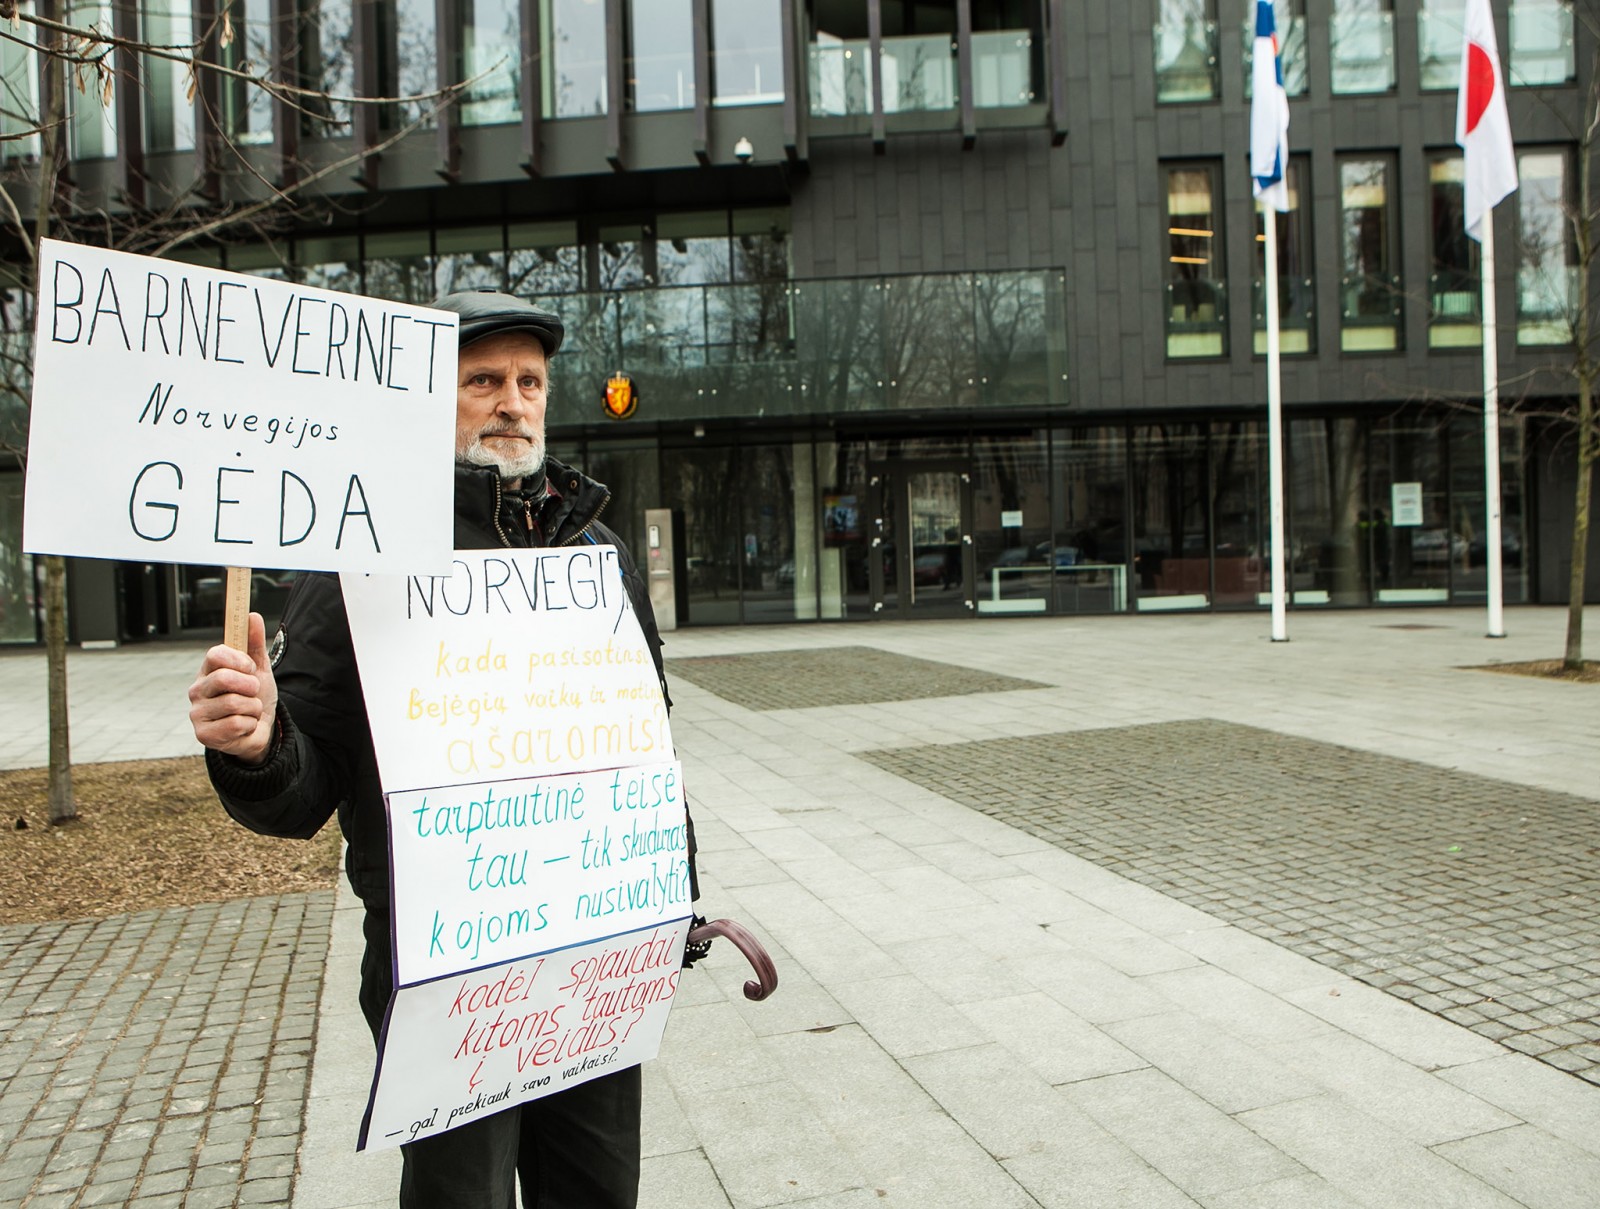 BARNEVERNET
Norvegijos
GĖDA
kada
Bejėgių vaikų ir
ašaromis?
tarptautinė teisė
tau – tik skuduras
kojoms nusivalyti?
kodėl spjaudai
kitoms tautoms
į veidus?
– gal prekiauk savo vaikais?.